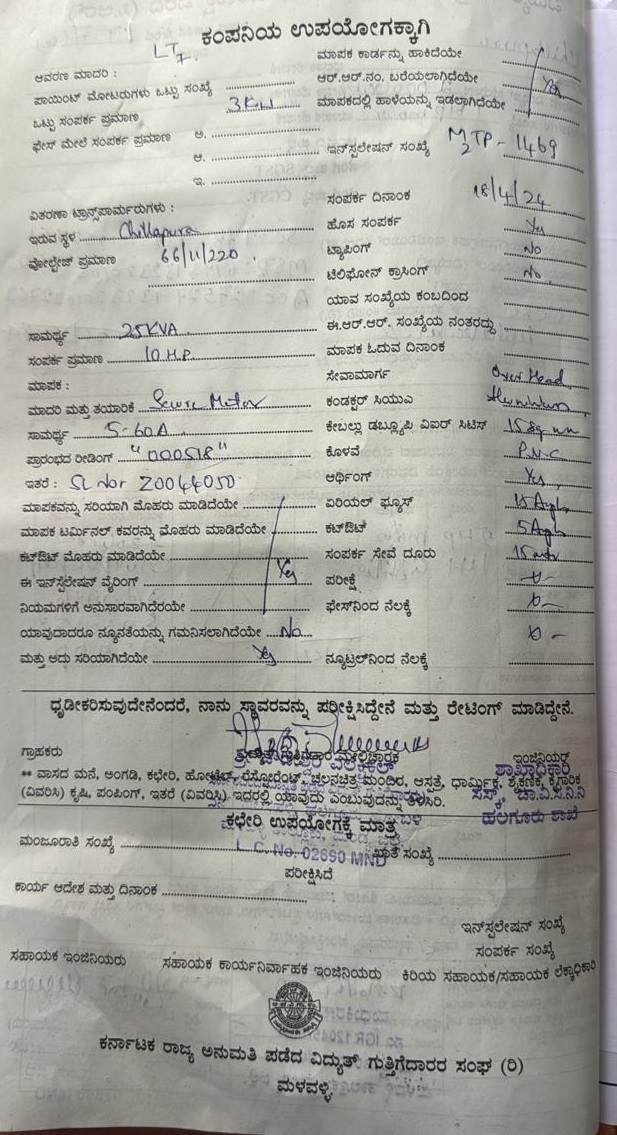 ಕಂಪನಿಯ ಉಪಯೋಗಕ್ಕಾಗಿ
ಆವರಣ ಮಾದರಿ : LT
ಪಾಯಿಂಟ್ ಮೋಟರುಗಳು ಒಟ್ಟು ಸಂಖ್ಯೆ
ಒಟ್ಟು ಸಂಪರ್ಕ ಪ್ರಮಾಣ 3KW
ಫೇಸ್ ಮೇಲೆ ಸಂಪರ್ಕ ಪ್ರಮಾಣ ಅ.
ಆ.
ಇ.
ವಿತರಣಾ ಟ್ರಾನ್ಸ್‌ಪಾರ್ಮರುಗಳು :
ಇರುವ ಸ್ಥಳ Chillapura
ವೋಲ್ಟೇಜ್ ಪ್ರಮಾಣ 66/11/220
ಸಾಮರ್ಥ್ಯ 25KVA
ಸಂಪರ್ಕ ಪ್ರಮಾಣ 10 H.P.
ಮಾಪಕ :
ಮಾದರಿ ಮತ್ತು ತಯಾರಿಕೆ
ಸಾಮರ್ಥ್ಯ 5-60A
ಪ್ರಾರಂಭದ ರೀಡಿಂಗ್ "000518"
ಇತರೆ : Sl No: 20044050
ಮಾಪಕವನ್ನು ಸರಿಯಾಗಿ ಮೊಹರು ಮಾಡಿದೆಯೇ
ಮಾಪಕ ಟರ್ಮಿನಲ್ ಕವರನ್ನು ಮೊಹರು ಮಾಡಿದೆಯೇ
ಕಟ್‌ಔಟ್ ಮೊಹರು ಮಾಡಿದೆಯೇ
ಈ ಇನ್‌ಸ್ಟಲೇಷನ್ ವೈರಿಂಗ್ Yes
ನಿಯಮಗಳಿಗೆ ಅನುಸಾರವಾಗಿದೆಯೇ
ಯಾವುದಾದರೂ ನ್ಯೂನತೆಯನ್ನು ಗಮನಿಸಲಾಗಿದೆಯೇ No
ಮತ್ತು ಅದು ಸರಿಯಾಗಿದೆಯೇ Yes
ಮಾಪಕ ಕಾರ್ಡನ್ನು ಹಾಕಿದೆಯೇ
ಆರ್.ಆರ್.ನಂ. ಬರೆಯಲಾಗಿದೆಯೇ Yes
ಮಾಪಕದಲ್ಲಿ ಹಾಳೆಯನ್ನು ಇಡಲಾಗಿದೆಯೇ
ಇನ್‌ಸ್ಟಲೇಷನ್ ಸಂಖ್ಯೆ M2TP - 1469
ಸಂಪರ್ಕ ದಿನಾಂಕ 18/4/24
ಹೊಸ ಸಂಪರ್ಕ Yes
ಟ್ಯಾಪಿಂಗ್ No
ಟೆಲಿಫೋನ್ ಕ್ರಾಸಿಂಗ್ No
ಯಾವ ಸಂಖ್ಯೆಯ ಕಂಬದಿಂದ
ಈ.ಆರ್.ಆರ್. ಸಂಖ್ಯೆಯ ನಂತರದ್ದು
ಮಾಪಕ ಓದುವ ದಿನಾಂಕ
ಸೇವಾಮಾರ್ಗ Over Head
ಕಂಡಕ್ಟರ್ ಸಿಯುವಿ
ಕೇಬಲ್ಲು ಡಬ್ಲ್ಯೂಪಿ ವಿಐರ್ ಸಿಟಿಸ್
ಕೊಳವೆ P.V.C
ಆರ್ಥಿಂಗ್ Yes
ಏರಿಯಲ್ ಫ್ಯೂಸ್
ಕಟ್‌ಔಟ್
ಸಂಪರ್ಕ ಸೇವೆ ದೂರು
ಪರೀಕ್ಷೆ
ಫೇಸ್‌ನಿಂದ ನೆಲಕ್ಕೆ
ನ್ಯೂಟ್ರಲ್‌ನಿಂದ ನೆಲಕ್ಕೆ
ಧೃಡೀಕರಿಸುವುದೇನೆಂದರೆ, ನಾನು ಸ್ಥಾವರವನ್ನು ಪರೀಕ್ಷಿಸಿದ್ದೇನೆ ಮತ್ತು ರೇಟಿಂಗ್ ಮಾಡಿದ್ದೇನೆ.
ಗ್ರಾಹಕರು ಇಂಜಿನಿಯರ್
ಶಾಖಾಧಿಕಾರಿ
** ವಾಸದ ಮನೆ, ಅಂಗಡಿ, ಕಛೇರಿ, ಹೋಟೆಲ್, ರೆಸ್ಟೋರೆಂಟ್, ಚಲನಚಿತ್ರ ಮಂದಿರ, ಆಸ್ಪತ್ರೆ, ಧಾರ್ಮಿಕ, ಶೈಕ್ಷಣಿಕ, ಕೈಗಾರಿಕೆ
(ವಿವರಿಸಿ) ಕೃಷಿ, ಪಂಪಿಂಗ್, ಇತರೆ (ವಿವರಿಸಿ) ಇದರಲ್ಲಿ ಯಾವುದು ಎಂಬುವುದನ್ನು ತಿಳಿಸಿರಿ.
ಹಲಗೂರು ಶಾಖೆ
ಕಛೇರಿ ಉಪಯೋಗಕ್ಕೆ ಮಾತ್ರ
ಮಂಜೂರಾತಿ ಸಂಖ್ಯೆ L.C. No. 02690 MND ಖಾತೆ ಸಂಖ್ಯೆ
ಪರೀಕ್ಷಿಸಿದೆ
ಕಾರ್ಯ ಆದೇಶ ಮತ್ತು ದಿನಾಂಕ
ಇನ್‌ಸ್ಟಲೇಷನ್ ಸಂಖ್ಯೆ
ಸಂಪರ್ಕ ಸಂಖ್ಯೆ
ಸಹಾಯಕ ಇಂಜಿನಿಯರು ಸಹಾಯಕ ಕಾರ್ಯನಿರ್ವಾಹಕ ಇಂಜಿನಿಯರು ಕಿರಿಯ ಸಹಾಯಕ/ಸಹಾಯಕ ಲೆಕ್ಕಾಧಿಕಾರಿ
ಕರ್ನಾಟಕ ರಾಜ್ಯ ಅನುಮತಿ ಪಡೆದ ವಿದ್ಯುತ್ ಗುತ್ತಿಗೆದಾರರ ಸಂಘ (ರಿ)
ಮಳವಳ್ಳಿ